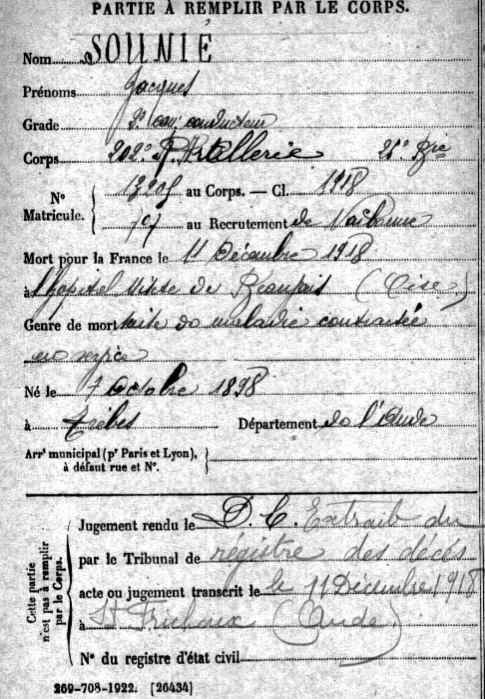 PARTIE À REMPLIR PAR LE CORPS.
Nom SOUNIÉ
Prénoms Jacques
Grade 2e can conducteur
Corps 202e R. Artillerie 21e Bie
N° Matricule. au Corps. — Cl. 1918
au Recrutement de Narbonne
Mort pour la France le 11 Décembre 1918
à l'hopital Mixte de Beauvais (Oise)
Genre de mort suite de maladie contractée
en service
Né le 7 Octobre 1898
à Trèbes Département de l'Aude
Arrt municipal (pr Paris et Lyon), à défaut rue et N°.
Cette partie n'est pas à remplir par le Corps.
Jugement rendu le D. C. Extrait du
par le Tribunal de régistre des décés
acte ou jugement transcrit le le 11 Décembre 1918
à St Frichoux (Aude)
N° du registre d'état civil
269-708-1922. [26434]